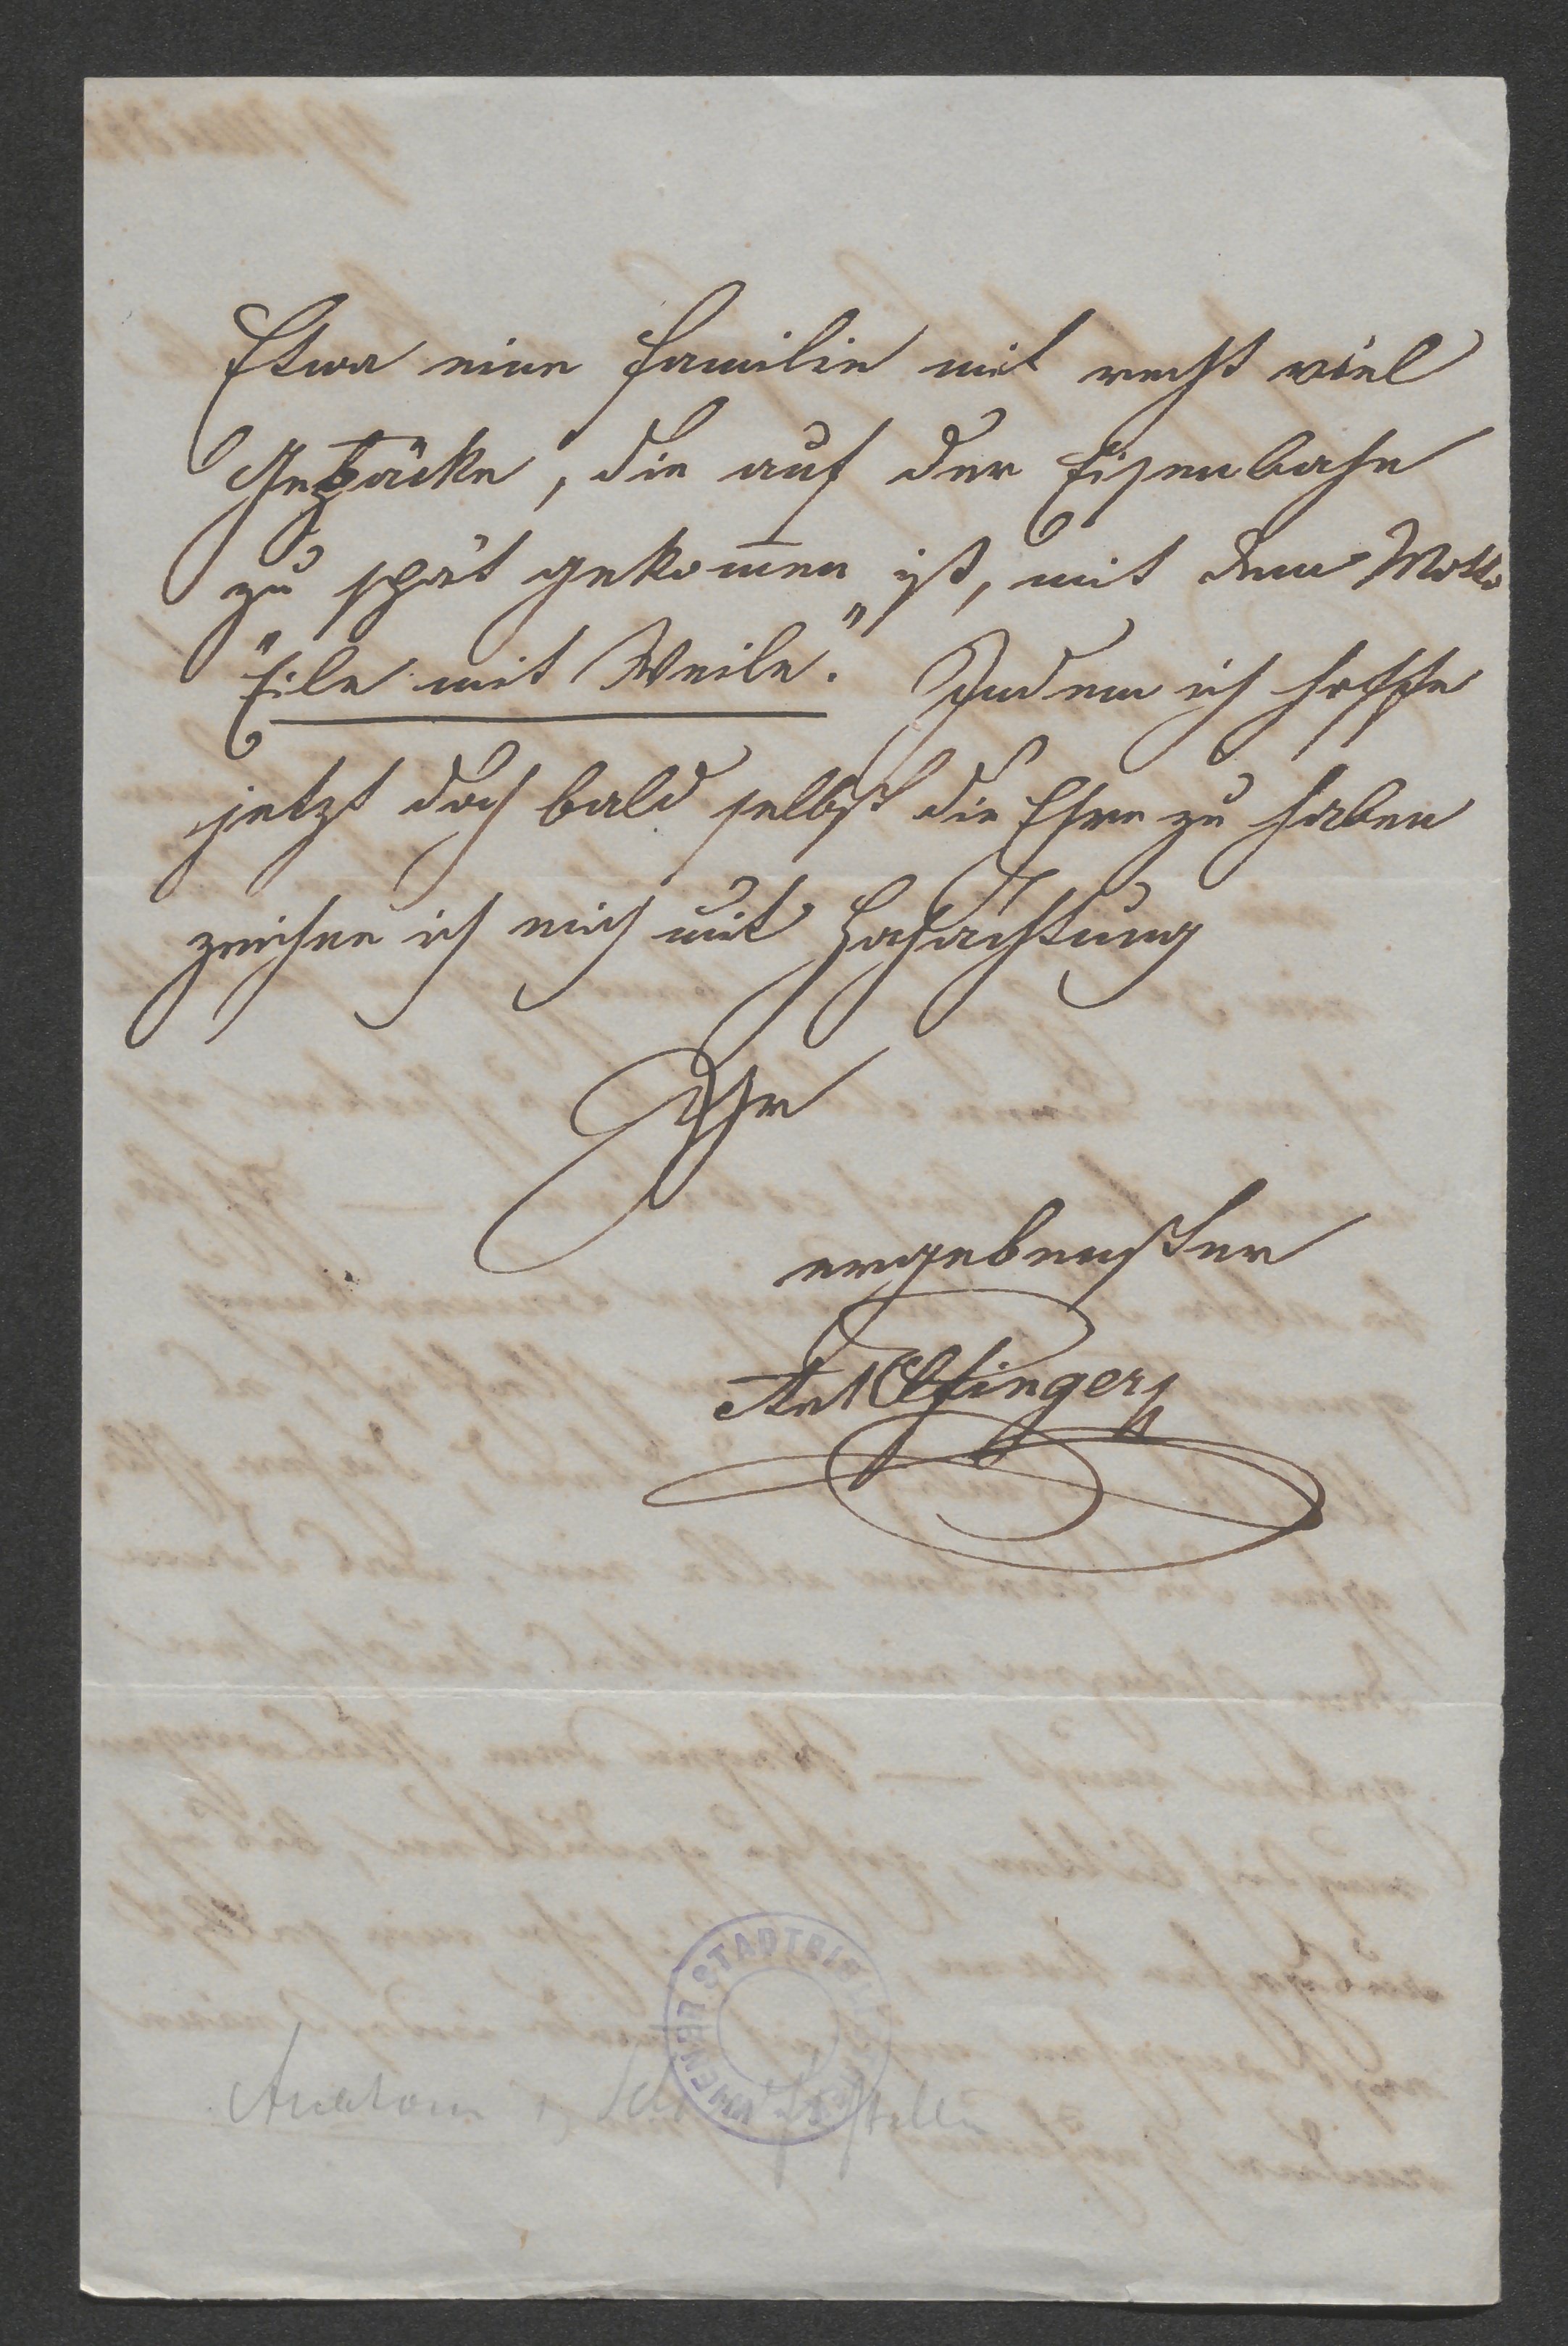 Etwa eine Familie mit recht viel
Gepäcke, die auf der Eisenbahn
zu spät gekom̅en ist, mit dem Motto
"Eile mit Weile." Indem ich hoffe
jetzt doch bald selbst die Ehre zu haben
zeichne ich mich mit Hochachtung
Ihr
ergebenster
Ant Elfinger
WIENER STADTBIBLIOTHEK
Anatom